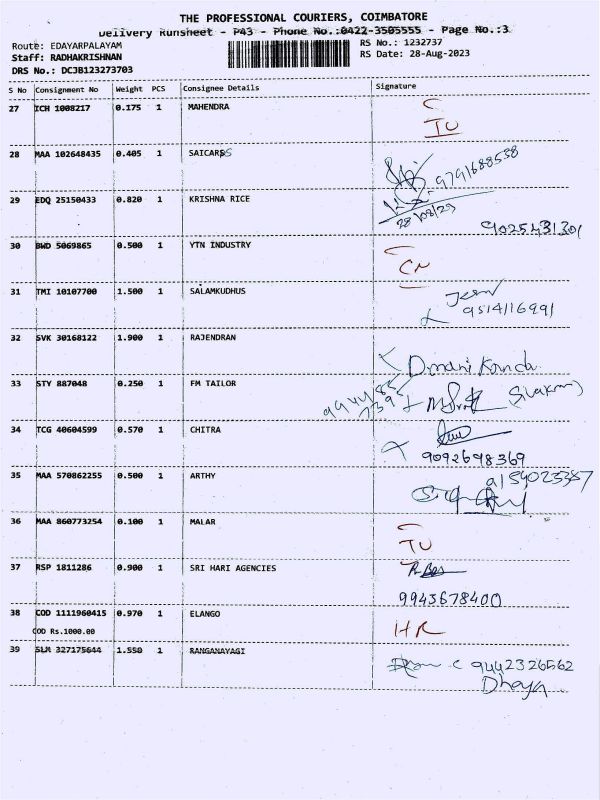 THE PROFESSIONAL COURIERS, COIMBATORE
Delivery Runsheet - P43 - Phone No.:0422-3505555 - Page No.:3
Route: EDAYARPALAYAM
RS No.: 1232737
Staff: RADHAKRISHNAN
RS Date: 28-Aug-2023
DRS No.: DCJB123273703
S No Consignment No Weight PCS Consignee Details Signature
27 ICH 1008217 0.175 1 MAHENDRA
IU
28 MAA 102648435 0.405 1 SAICARS
9791688538
29 EDQ 25150433 0.820 1 KRISHNA RICE
28/08/23
9025431301
30 BWD 5069865 0.500 1 YTN INDUSTRY
CN
31 TMI 10107700 1.500 1 SALAMKUDHUS
9514116991
32 SVK 30168122 1.900 1 RAJENDRAN
33 STY 887048 0.250 1 FM TAILOR
34 TCG 40604599 0.570 1 CHITRA
9092698369
35 MAA 570862255 0.500 1 ARTHY
9154023367
36 MAA 860773254 0.100 1 MALAR
TU
37 RSP 1811286 0.900 1 SRI HARI AGENCIES
9943678400
38 COD 1111960415 0.970 1 ELANGO
COD Rs.1000.00
HR
39 SLM 327175644 1.550 1 RANGANAYAGI
9442326562
Dhaya